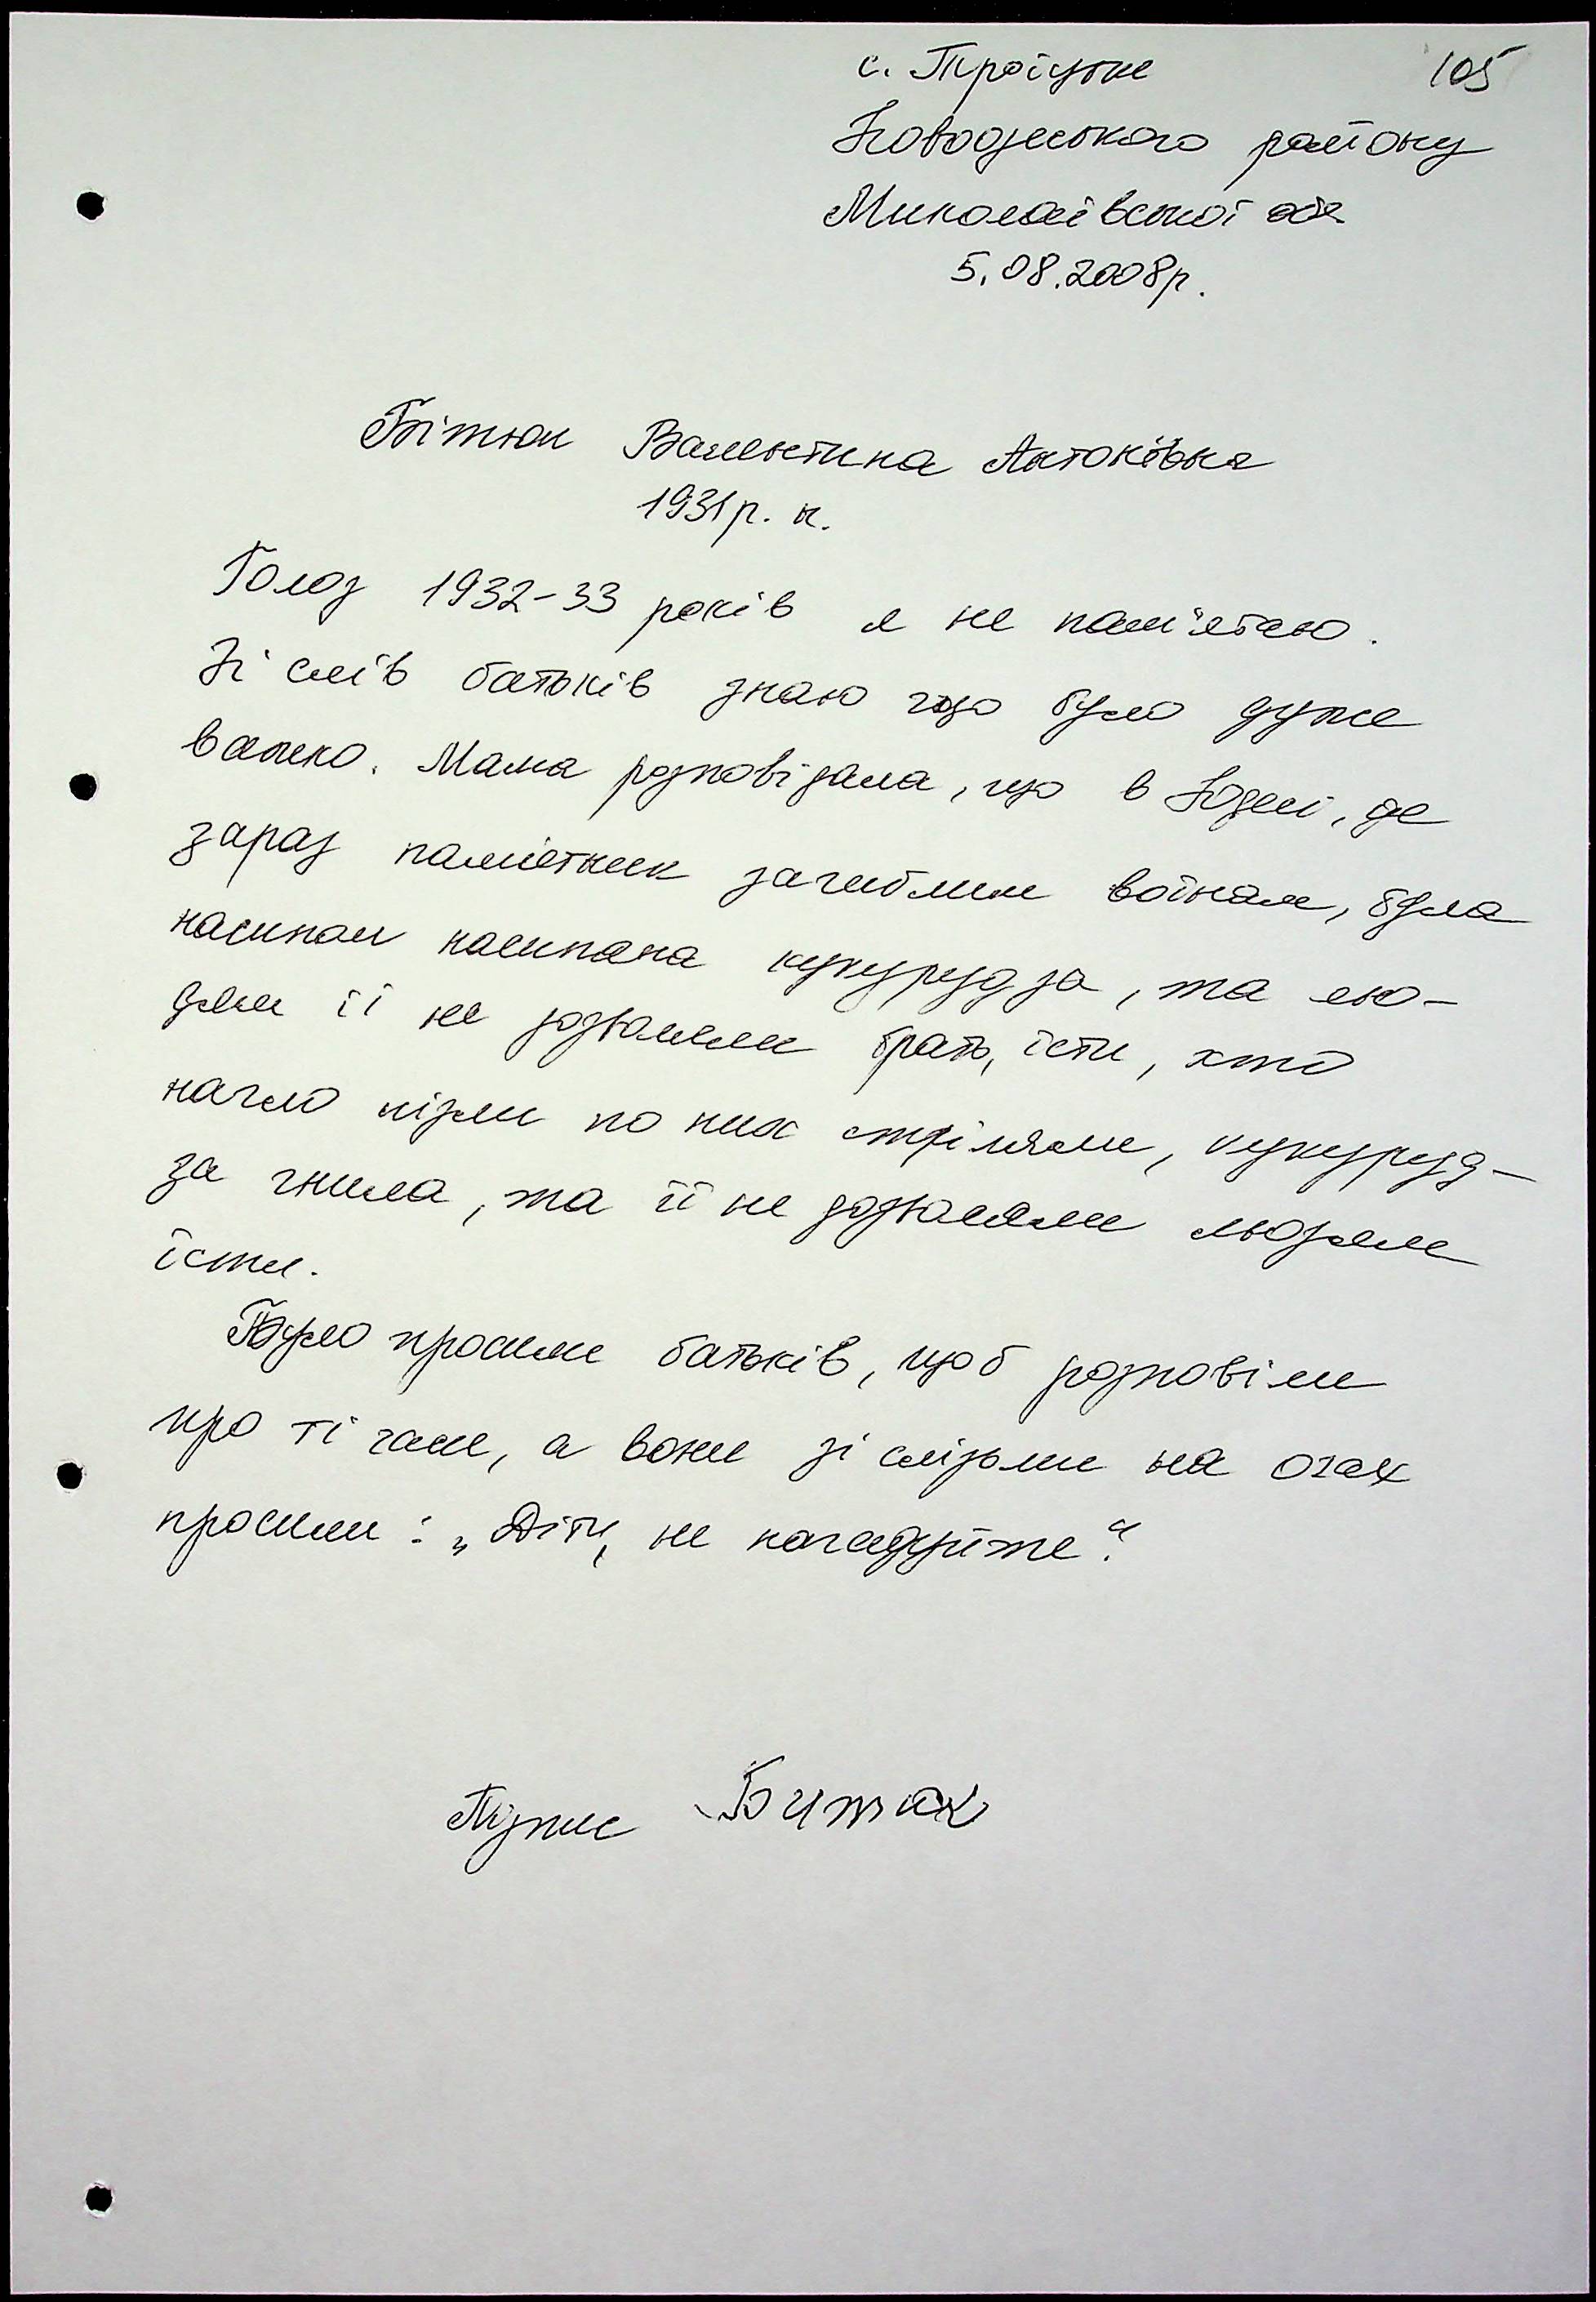 с. Троїцьке 105
Новоодеського району
Миколаївської обл
5.08.2008р.
Бітюк Валентина Антонівна
1931р. н.
Голод 1932-33 років я не пам'ятаю.
Зі слів батьків знаю що було дуже
важко. Мама розповідала, що в Юдесі, де
зараз памятник загиблим воїнам, була
насипом насипана кукурудза, та лю-
дям її не дозволяли брать, їсти, хто
нагло лізли по них стріляли, кукуруд-
за гнила, та її не дозволяли людям
їсти.
Було просили батьків, щоб розповіли
про ті часи, а вони зі слізьми на очах
просили: „Діти, не нагадуйте“.
Підпис